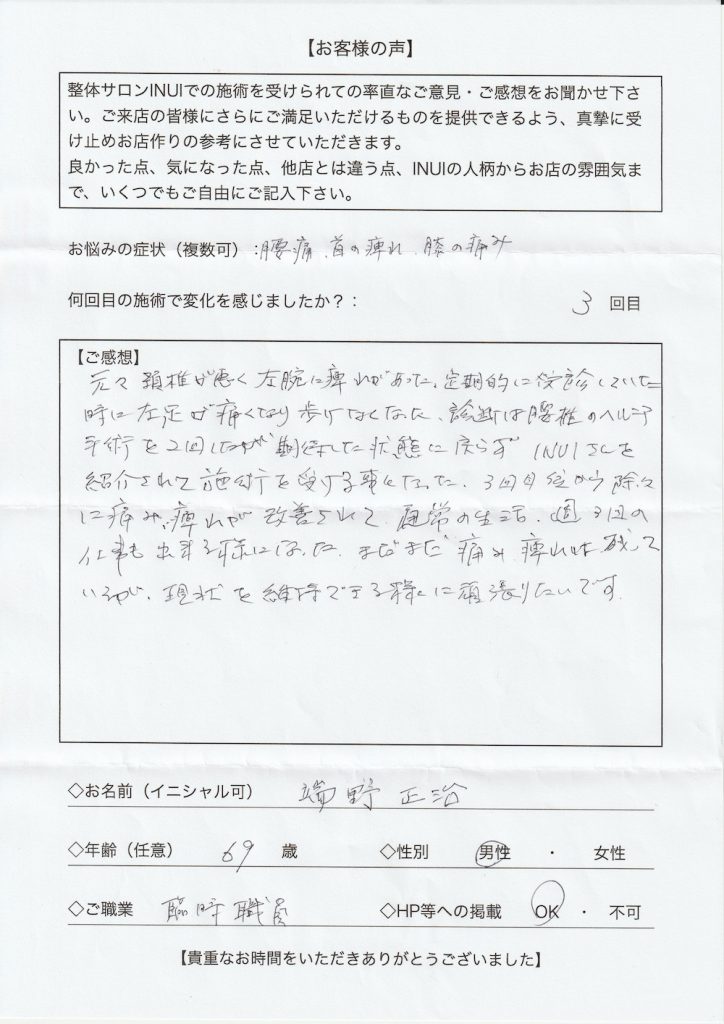 【お客様の声】
整体サロンINUIでの施術を受けられての率直なご意見・ご感想をお聞かせ下さ
い。ご来店の皆様にさらにご満足いただけるものを提供できるよう、真摯に受
け止めお店作りの参考にさせていただきます。
良かった点、気になった点、他店とは違う点、INUIの人柄からお店の雰囲気ま
で、いくつでもご自由にご記入下さい。
お悩みの症状（複数可）：腰痛、首の痺れ、膝の痛み
何回目の施術で変化を感じましたか？： 3 回目
【ご感想】
元々頚椎が悪く左腕に痺れがあった。定期的に受診していた
時に左足が痛くなり歩けなくなった、診断は腰椎のヘルニア
手術を2回したが期待した状態に戻らず INUIさんを
紹介されて施術を受ける事になった。3回目位から除々
に痛み、痺れが改善されて、通常の生活、週3回の
仕事も出来る様になった。まだまだ痛み、痺れは残って
いるが、現状を維持できる様に頑張りたいです。
◇お名前（イニシャル可） 端野 正治
◇年齢（任意） 69 歳 ◇性別 男性 ・ 女性
◇ご職業 臨時職員 ◇HP等への掲載 OK ・ 不可
【貴重なお時間をいただきありがとうございました】